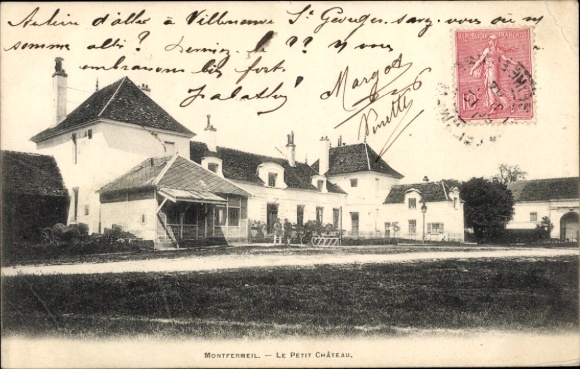 Autun d'aller à Villeneuve St Georges. savez-vous où n
somme allé? Devinez-le ?? n vous
embrassons bien fort.
Margot
Ninette
RÉPUBLIQUE FRANÇAISE
10
MONTFERMEIL. — LE PETIT CHÂTEAU.